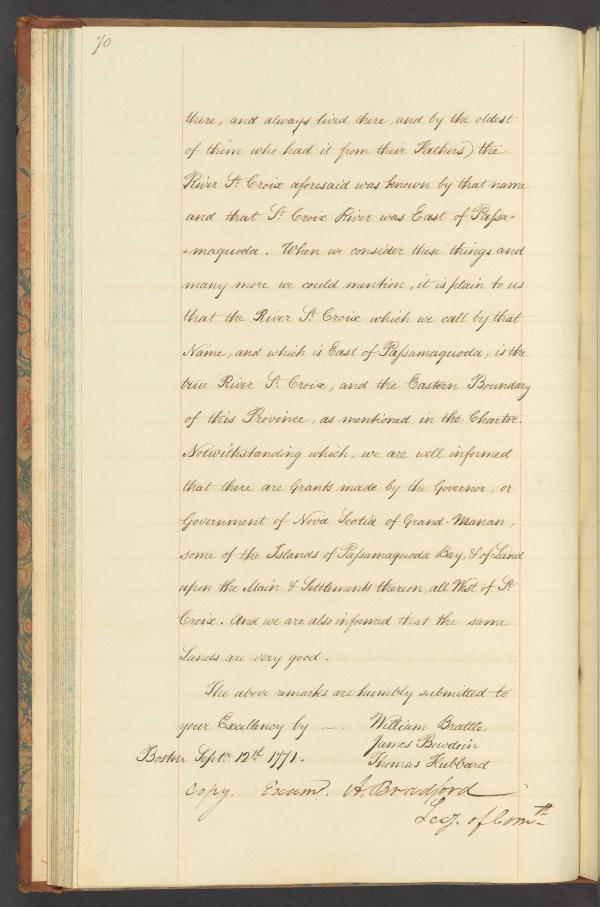 70
there, and always lived there, and by the oldest
of them who had it from their Fathers) the
River St Croix aforesaid was known by that name
and that St Croix River was East of Passa-
-maquoda. When we consider these things and
many more we could mention, it is plain to us
that the River St Croix which we call by that
Name, and which is East of Passamaquoda, is the
true River St Croix, and the Eastern Boundary
of this Province, as mentioned in the Charter.
Notwithstanding which, we are well informed
that there are Grants made by the Governor, or
Government of Nova Scotia of Grand-Manan,
some of the Islands of Passamaquoda Bay, & of Land
upon the Main & Settlements thereon, all West of St
Croix. And we are also informed that the same
Lands are very good.
The above remarks are humbly submitted to
your Excellency by — William Brattle
James Bowdoin
Boston Septr 12th 1771. Thomas Hubbard
Copy. Examd. A. Bradford
Secy. of Comth